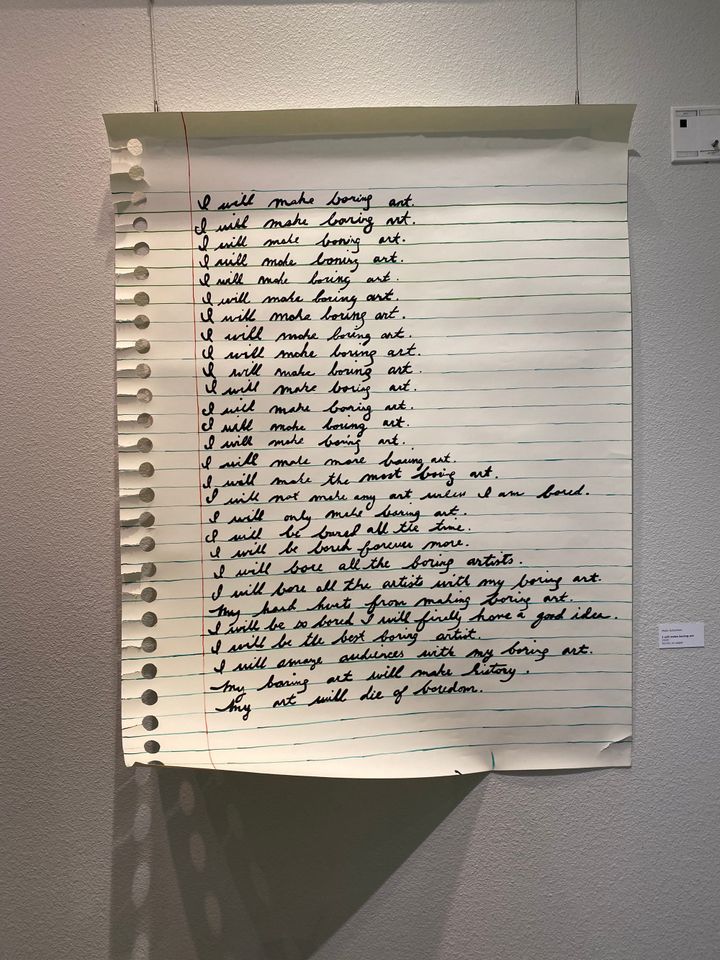 I will make boring art.
I will make boring art.
I will make boring art.
I will make boring art.
I will make boring art.
I will make boring art.
I will make boring art.
I will make boring art.
I will make boring art.
I will make boring art.
I will make boring art.
I will make boring art.
I will make boring art.
I will make boring art.
I will make more boring art.
I will make the most boring art.
I will not make any art unless I am bored.
I will only make boring art.
I will be bored all the time.
I will be bored forever more.
I will bore all the boring artists.
I will bore all the artists with my boring art.
My hand hurts from making boring art.
I will be so bored I will finally have a good idea.
I will be the best boring artist.
I will amaze audiences with my boring art.
My boring art will make history.
My art will die of boredom.
I will make boring art